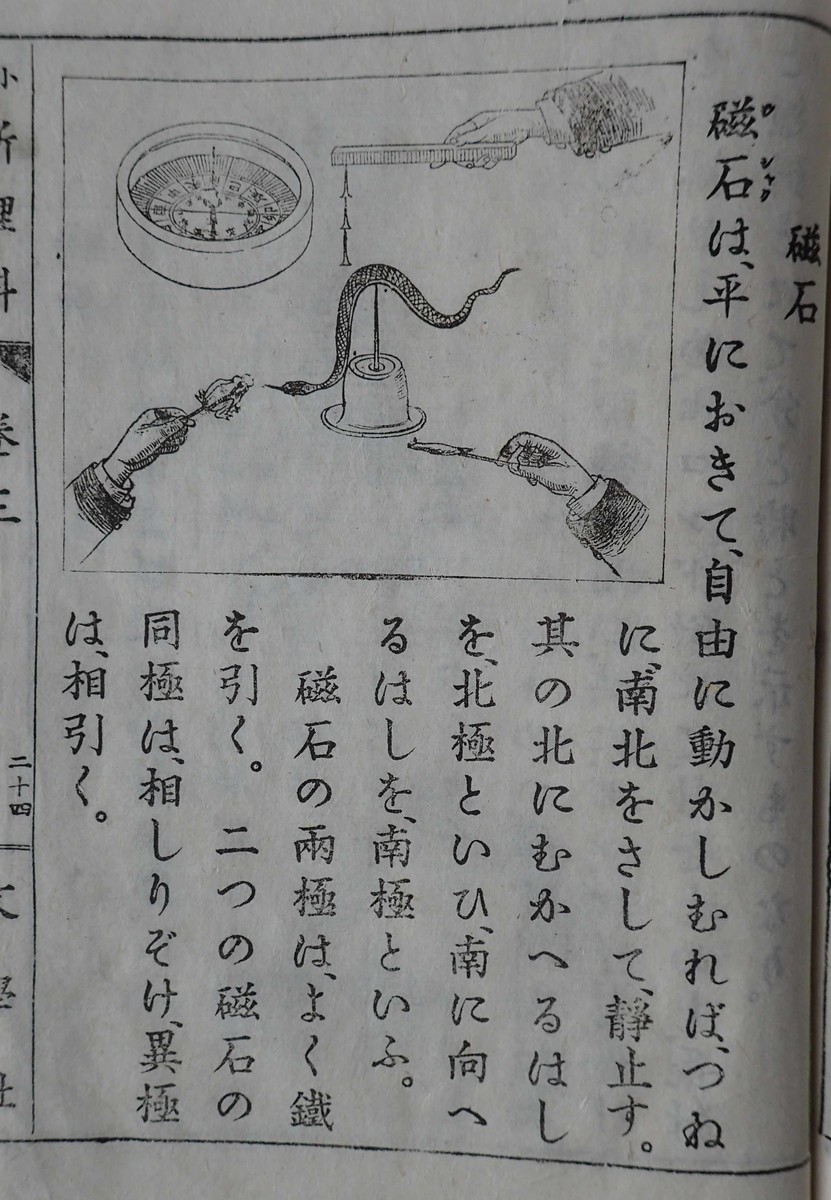 磁石
磁石は、平におきて、自由に動かしむれば、つね
に、南北をさして、靜止す。
其の北にむかへるはし
を、北極といひ、南に向へ
るはしを、南極といふ。
磁石の兩極は、よく鐵
を引く。二つの磁石の
同極は、相しりぞけ、異極
は、相引く。
小新理科
卷三
二十四
文學社